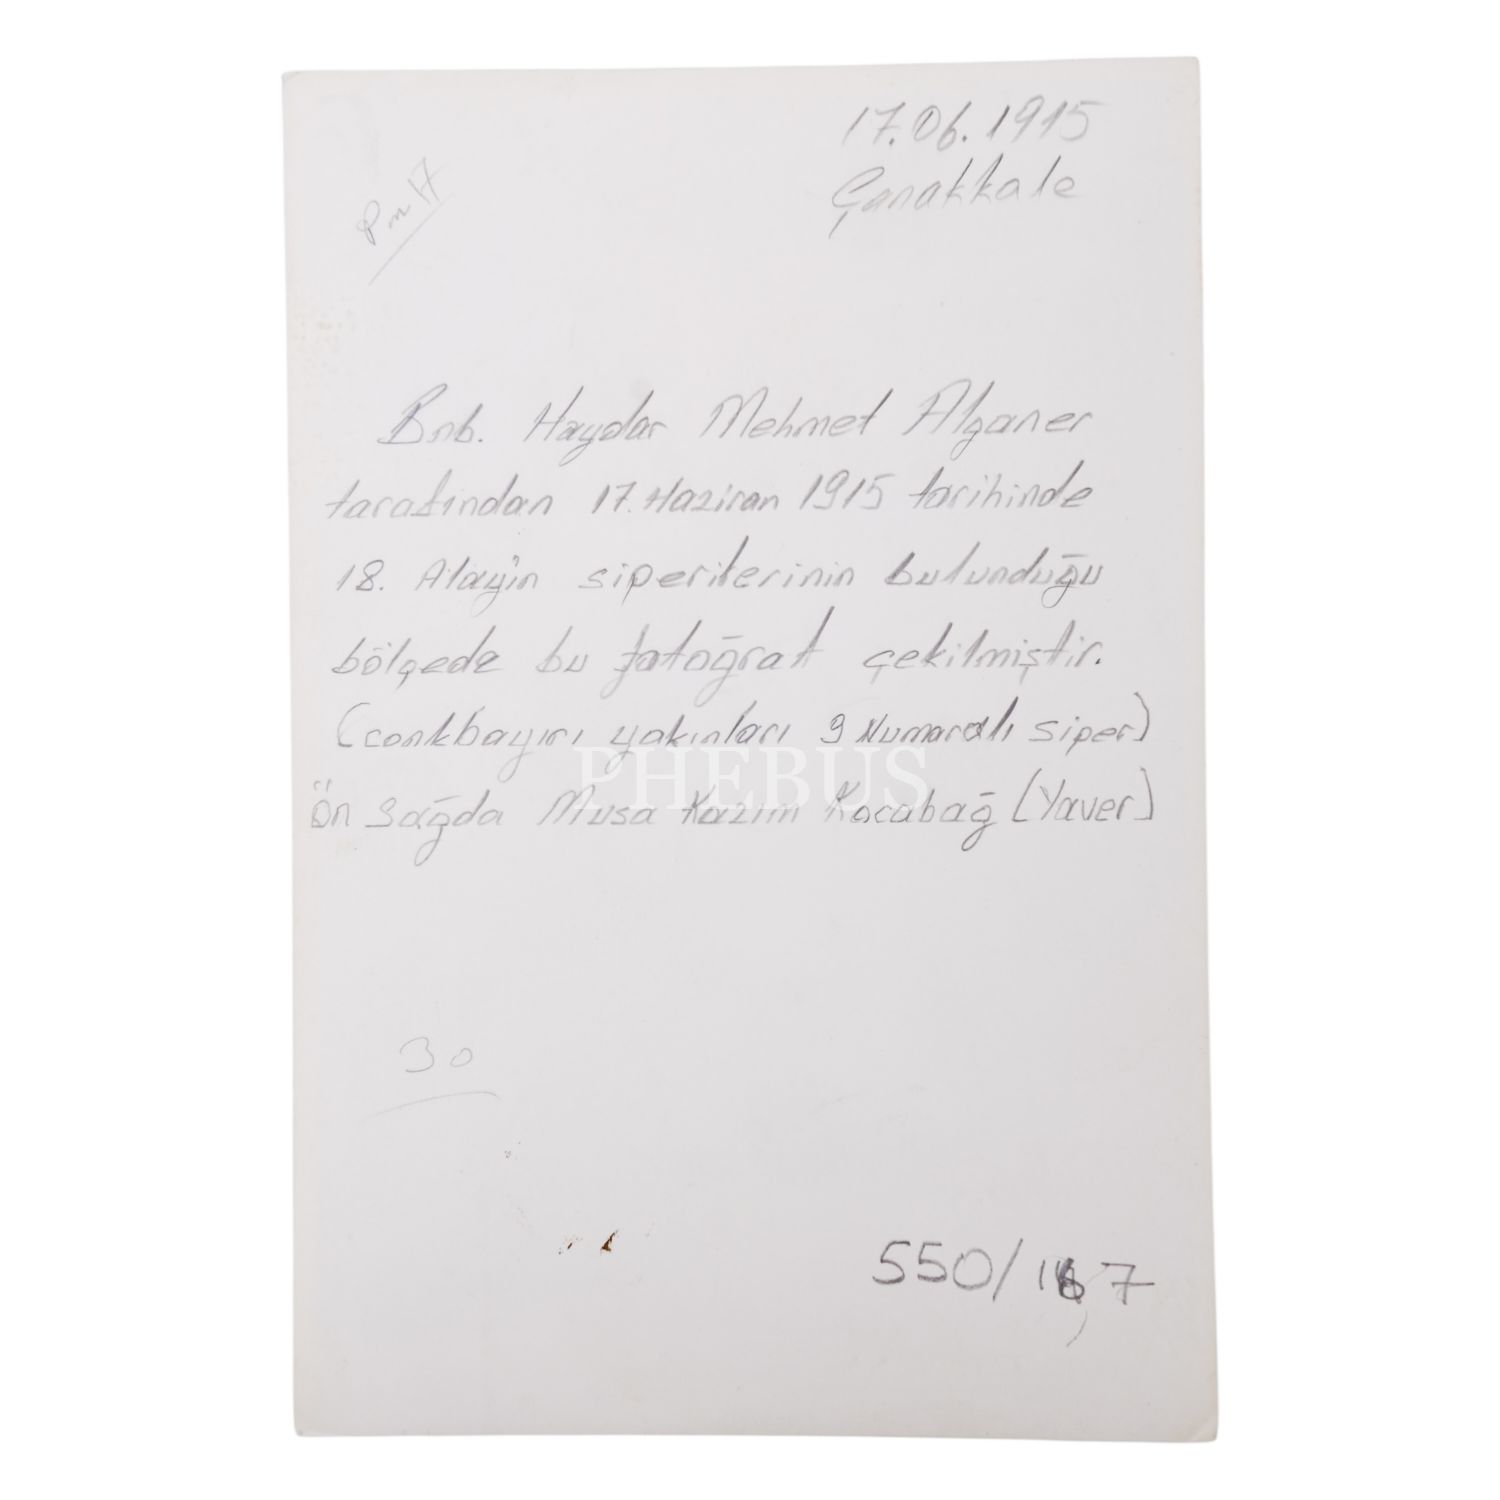 17.06.1915
Çanakkale
Pm 17
Bnb. Haydar Mehmet Alganer
tarafından 17. Haziran 1915 tarihinde
18. Alayın siperilerinin bulunduğu
bölgede bu fotoğraf çekilmiştir.
(conkbayırı yakınları 9 Numaralı siper)
PHEBUS
Ön Sağda Musa Kazım Kocabağ (Yaver)
30
550/167